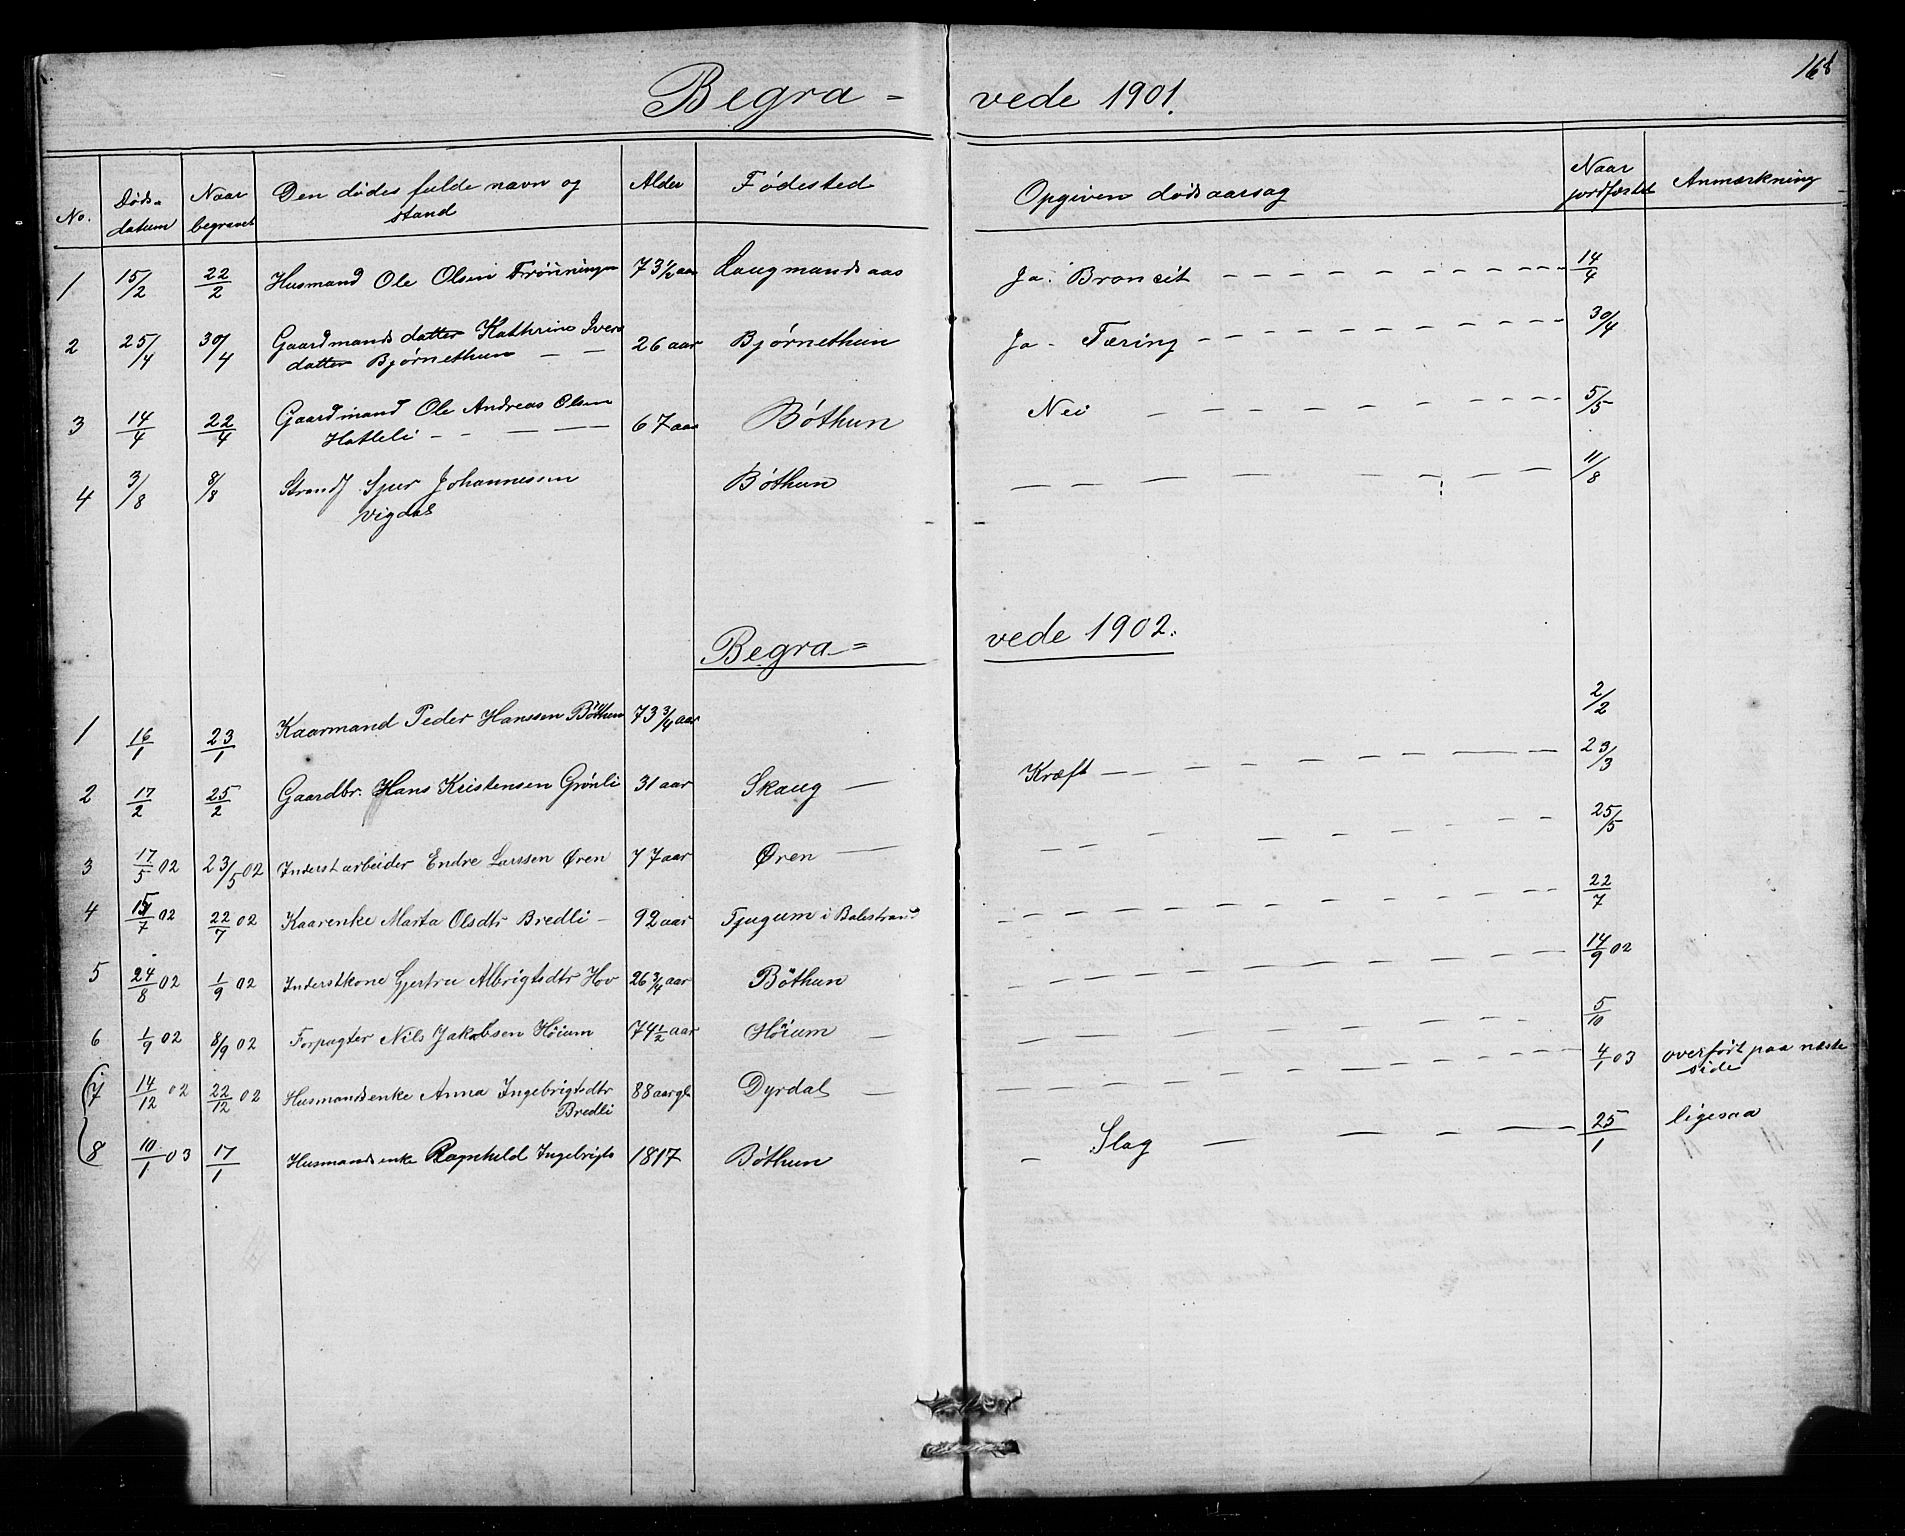 168
Begra- vede 1901.
No. Dødsdatum Naar begravet Den dødes fulde navn og stand Alder Fødested Opgiven dødsaarsag Naar jordfæstet Anmærkning
1 15/2 22/2 Husmand Ole Olsen Trønningen 73 1/2 aar Laugmandsaas Ja. Broncit 14/4
2 25/4 30/4 Gaardmandsdatter Kathrine Ivers
datter Bjørnethun 26 aar Bjørnethun Ja - Tæring 30/4
3 14/4 22/4 Gaardmand Ole Andreas Olsen
Hatleli 67 aar Bøthun Nei 5/5
4 3/8 8/8 Sjur Johannessen
Vigdal Bøthun 11/8
Begra= vede 1902.
1 16/1 23/1 Kaarmand Peder Hanssen Bøthun 73 3/4 aar 2/2
2 17/2 25/2 Gaardbr. Hans Kristensen Grønli 31 aar Skaug Kræft 23/3
3 17/5 02 23/5 02 Inderst arbeider Endre Larssen Øren 77 aar Øren 25/5
4 15/7 02 22/7 02 Kaarenke Marta Olsdtr Bredli 92 aar Tjugum i Balestrand 22/7
5 24/8 02 1/9 02 Inderstkone Gjertru Albrigtsdtr Hov 26 3/4 aar Bøthun 14/9 02
6 1/9 02 8/9 02 Forpagter Nils Jakobsen Høium 74 1/2 aar Høium 5/10
7 14/12 02 22/12 02 Husmandsenke Anna Ingebrigtsdtr
Bredli 88 aar gl Dyrdal 4/1 03 overført paa næste
side
8 10/1 03 17/1 Husmandsenke Ragnhild Ingebrigts 1817 Bøthun Slag 25/1 ligesaa